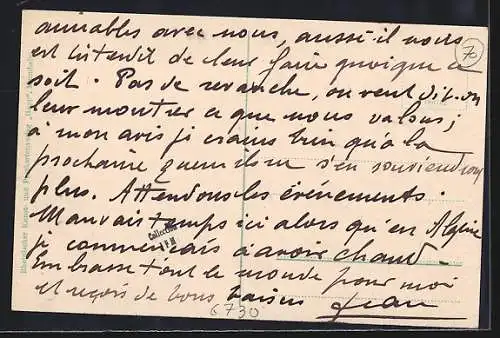 aimables avec nous, aussi il nous
est interdit de leur faire quoique ce
soit. Pas de revanche, on veut dit-on
leur montrer ce que nous valons ;
à mon avis je crains bien qu'à la
prochaine guerre ils ne s'en souviendront
plus. Attendons les événements.
Mauvais temps ici alors qu'en Algérie
je commençais à avoir chaud.
Embrasse tout le monde pour moi
et reçois de bons baisers Jean
70
Collection
6730